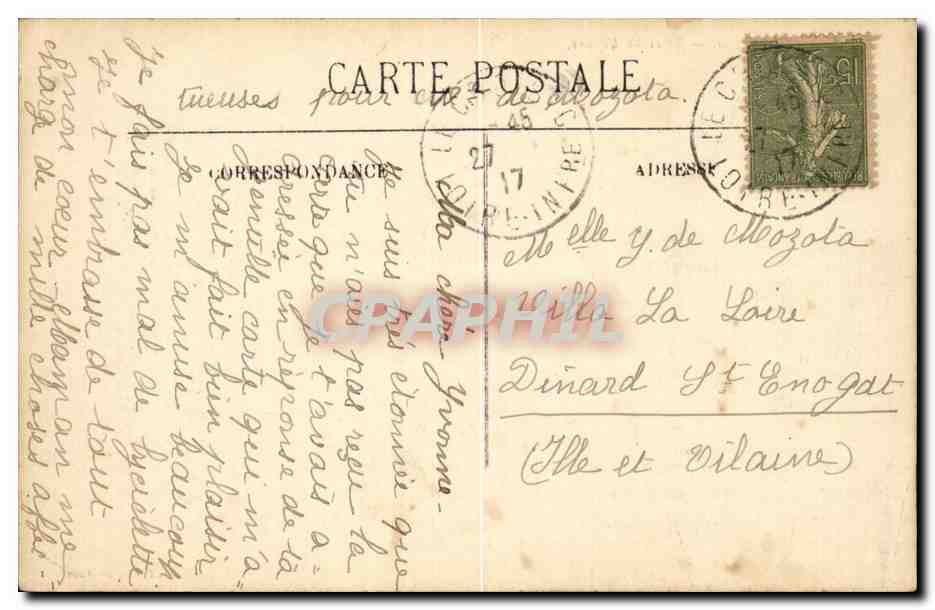 CARTE POSTALE
CORRESPONDANCE
ADRESSE
Ma chère Yvonne-
Je suis très étonnée que
tu n'aies pas reçu la
carte que je t'avais a-
dressée en réponse de ta
gentille carte qui m'a-
vait fait bien plaisir
Je m'amuse beaucoup
Je fais pas mal de bycíclette
Je t'embrasse de tout
mon cœur- Maman me
charge de mille choses affec-
tueuses pour Mé de Mozota.
Melle Y. de Mozota
Villa La Loire
Dinard St Enogat
(Ille et Vilaine)
-45
27
17
LOIRE-INFRE
15
45
17
LOIRE-INFRE
CPAPHIL